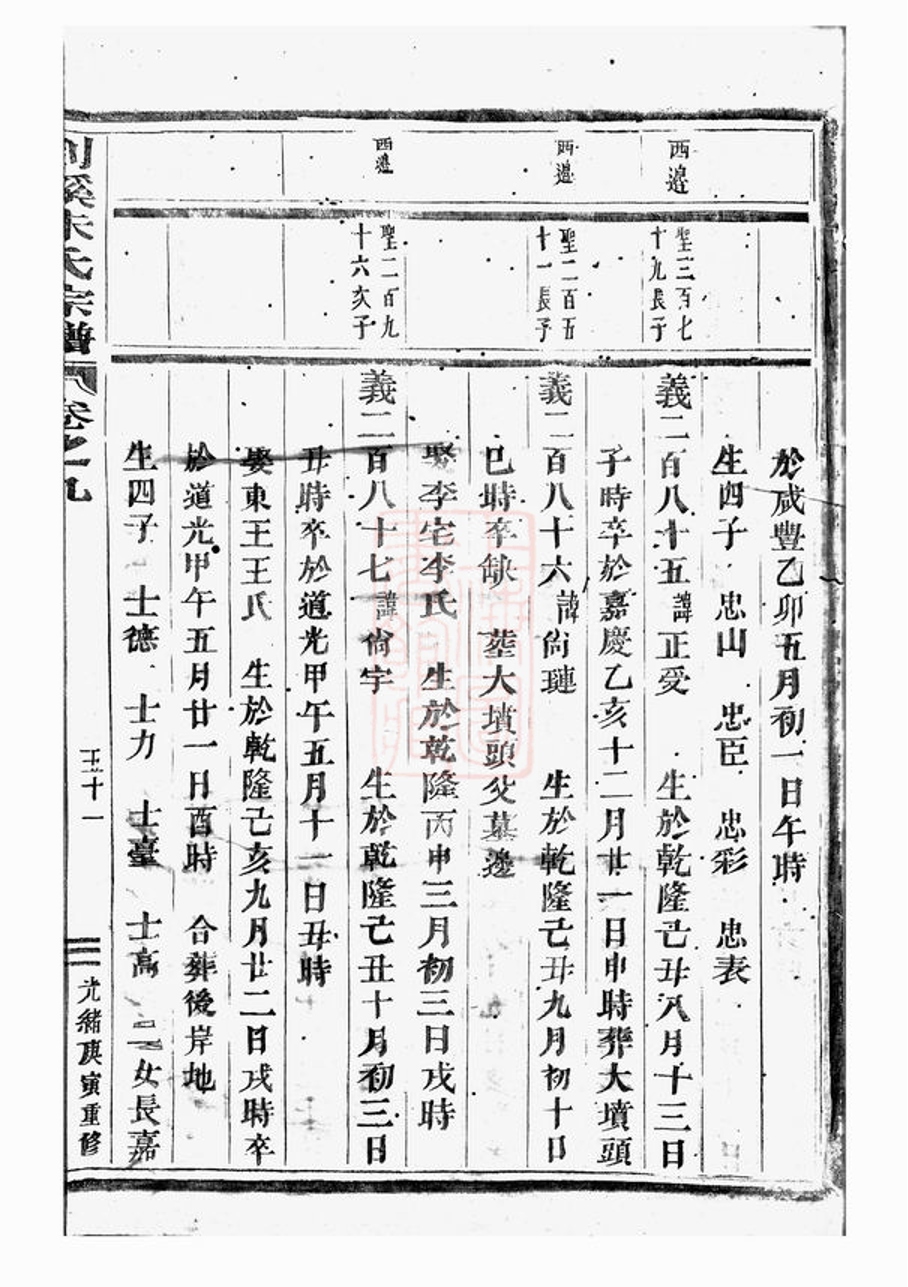 西邊
聖三百七
十九長子
西邊
聖二百五
十一長子
西邊
聖二百九
十六亥子
於咸豐乙卯五月初一日午時
生四子 忠山 忠臣 忠彩 忠表
義二百八十五諱正受 生於乾隆己丑八月十三日
子時卒於嘉慶乙亥十二月廿一日申時葬大墳頭
義二百八十六諱尙璉 生於乾隆己丑九月初十日
巳時卒缺 葬大墳頭父墓邊
娶李宅李氏 生於乾隆丙申三月初三日戌時
義二百八十七諱尙宇 生於乾隆己丑十月初三日
丑時卒於道光甲午五月十一日丑時
娶東王王氏 生於乾隆己亥九月廿二日戌時卒
於道光甲午五月廿一日酉時 合葬後岸地
生四子 士德 士力 士臺 士高 二女長嘉
溪朱氏宗譜 卷之九
五十一
光緒庚寅重修